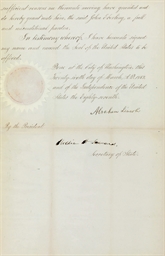 sufficient reasons in the much moving, have granted and
do hereby grant unto him, the said John Fleeting, a full
and unconditional pardon.
In testimony whereof, I have hereunto signed
my name and caused the Seal of the United States to be
affixed.
Done at the City of Washington, this
Twenty sixth day of March, A.D. 1863,
and of the Independence of the United
States the Eighty-seventh.
Abraham Lincoln
By the President:
William H. Seward
Secretary of State.